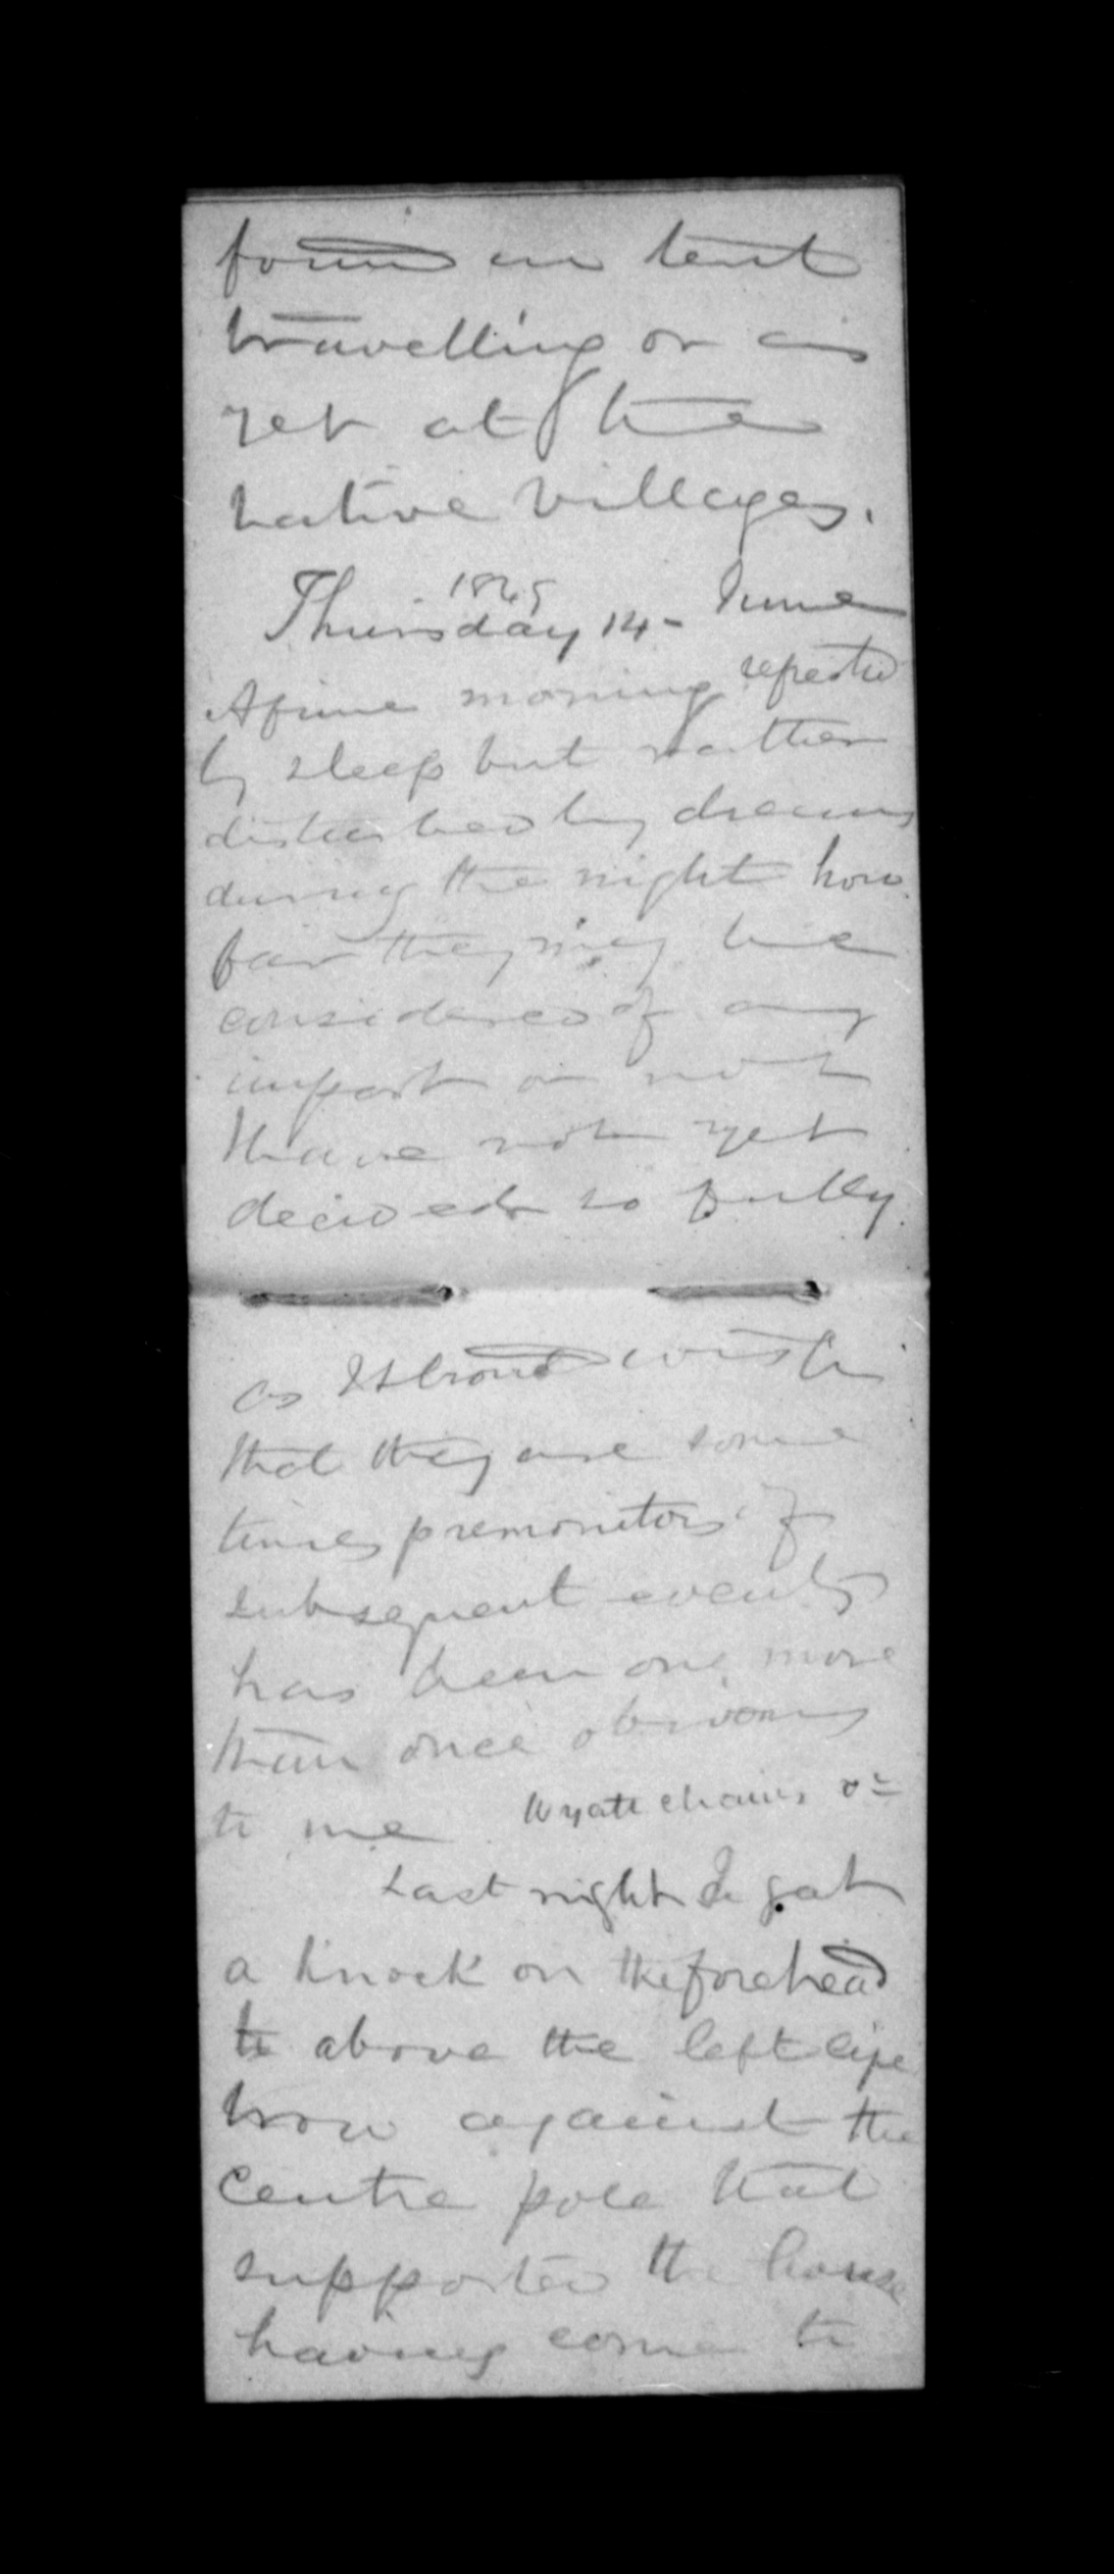 found in tent
travelling or as
yet at the
native villages.
1845
Thursday 14 - June
A fine morning refreshed
by sleep but rather
disturbed by dreams
during the night how
far they may be
considered of any
import or not
I have not yet
decided so fully
as I should wish
that they are some
times premonitors of
subsequent events
has been on more
than once obvious
to me Wyatt chairs &c
Last night I got
a knock on the forehead
to above the left eye
brow against the
centre pole that
supported the house
having come to